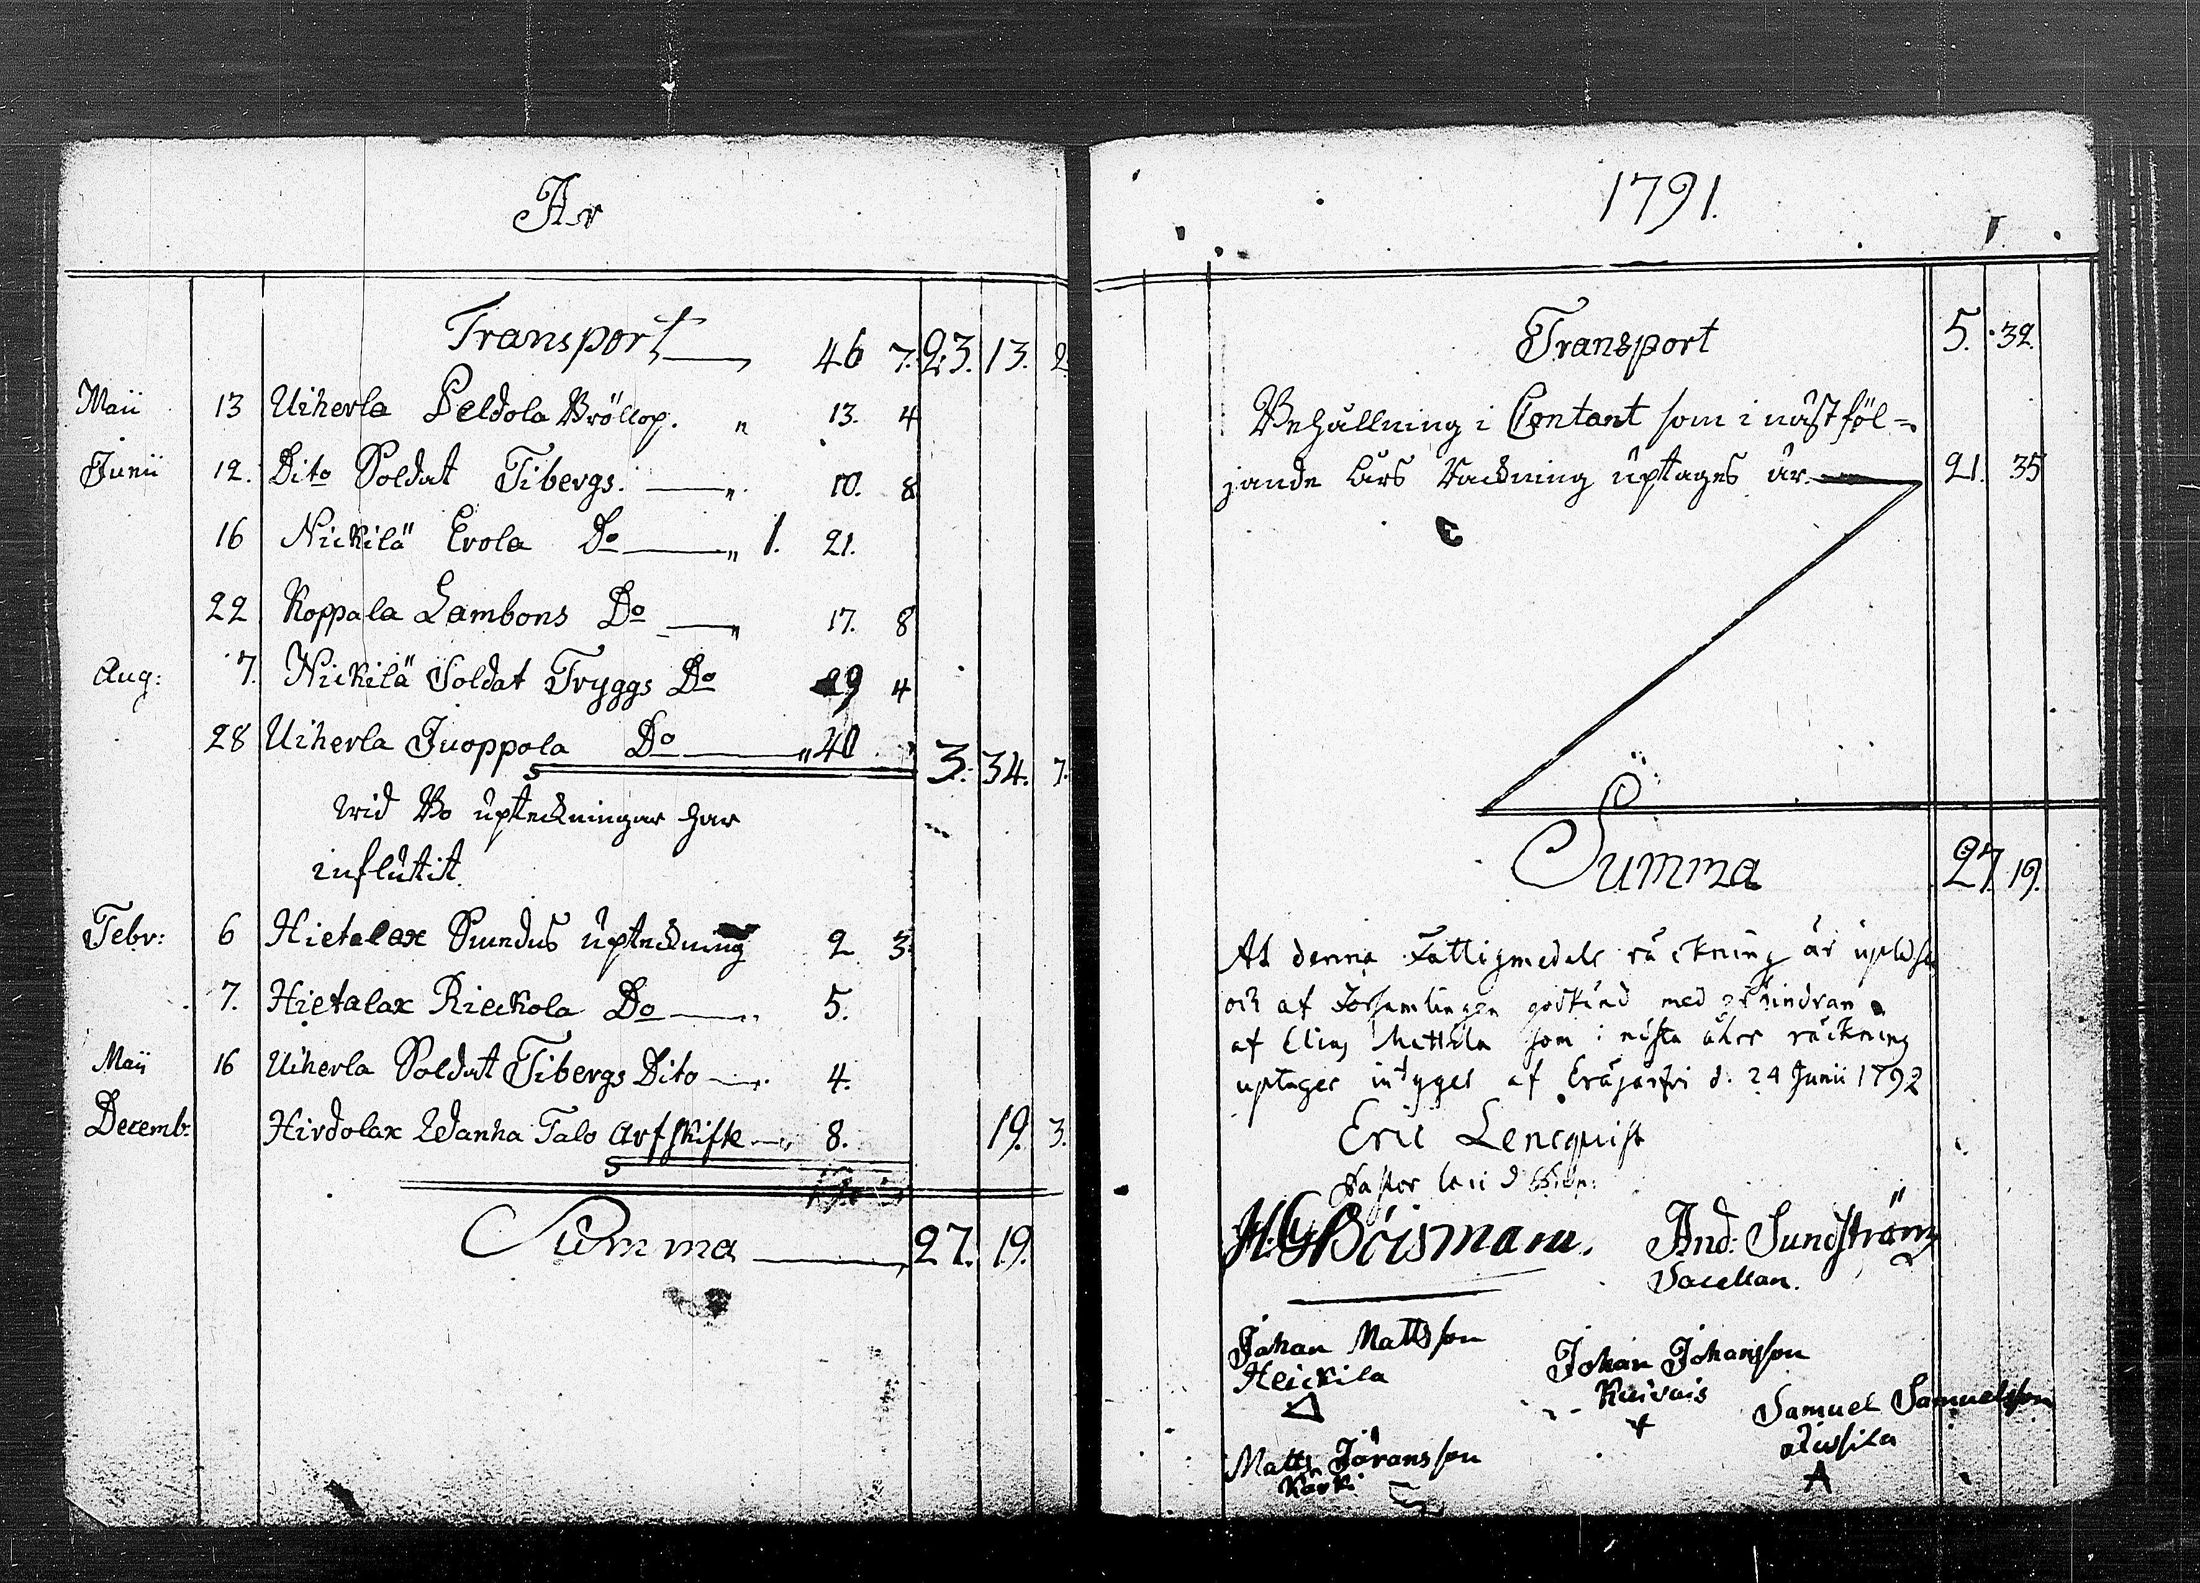 År
Transport 46 7. 23. 13. 2
Maii 13 Uiherla Peldola Bröllop. " 13. 4
Junii 12. Dito Soldat Tibergs. " 10. 8
16 Nickilä Erola Do " 1. 21.
22 Koppala Lambons Do " 17. 8
Aug: 7. Nickilä Soldat Tryggs Do 29 4
28 Uiherla Juoppola Do " 40 " 3. 34. 7.
wid Bo upteckningar har
influtit.
Febr: 6 Hietalax Sundus upteckning 2 3.
7. Hietalax Rieckola Do 5.
Maij 16 Uiherla Soldat Tibergs Dito 4.
Decemb: Hirdolax Wanha Talo Arfskifte 8. 19. 3.
Summa 27. 19.
1791.
Transport 5. 32.
Behållning i Contant som i nästföl=
jande års Räckning uptages är. 21. 35
Summa 27. 19.
At denna Fattigmedels räckning är upläst
och af Församlingen godkänd med påmindran
af Elias Mattila som i nästa åhrs räckning
uptages intygas af Eräjärfvi d. 24 Junii 1792
Eric Lencquist
Pastor loci
H. G. Boisman. And: Sundström
Sacellan.
Johan Mattsson
Heickila
Johan Johansson
Kuivais
Samuel Samuelsson
Matts Jöransson
Kärki
A